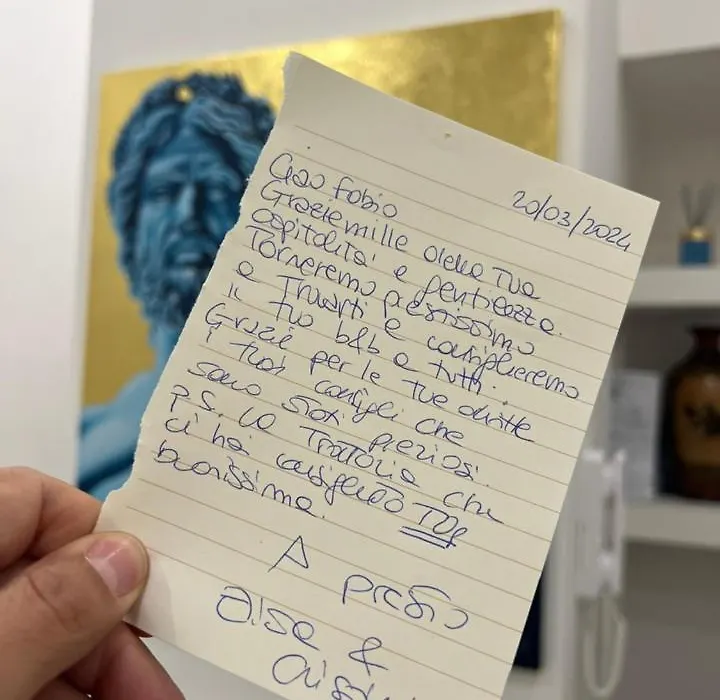 20/03/2024
Ciao Fabio
Grazie mille della Tua
ospitalità e gentilezza.
Torneremo prestissimo
a Trovarti e consiglieremo
il tuo b&b a tutti.
Grazie per le tue dritte
i tuoi consigli che
sono stati preziosi.
P.S. La Trattoria che
ci hai consigliato TOP
buonissima.
A presto
&